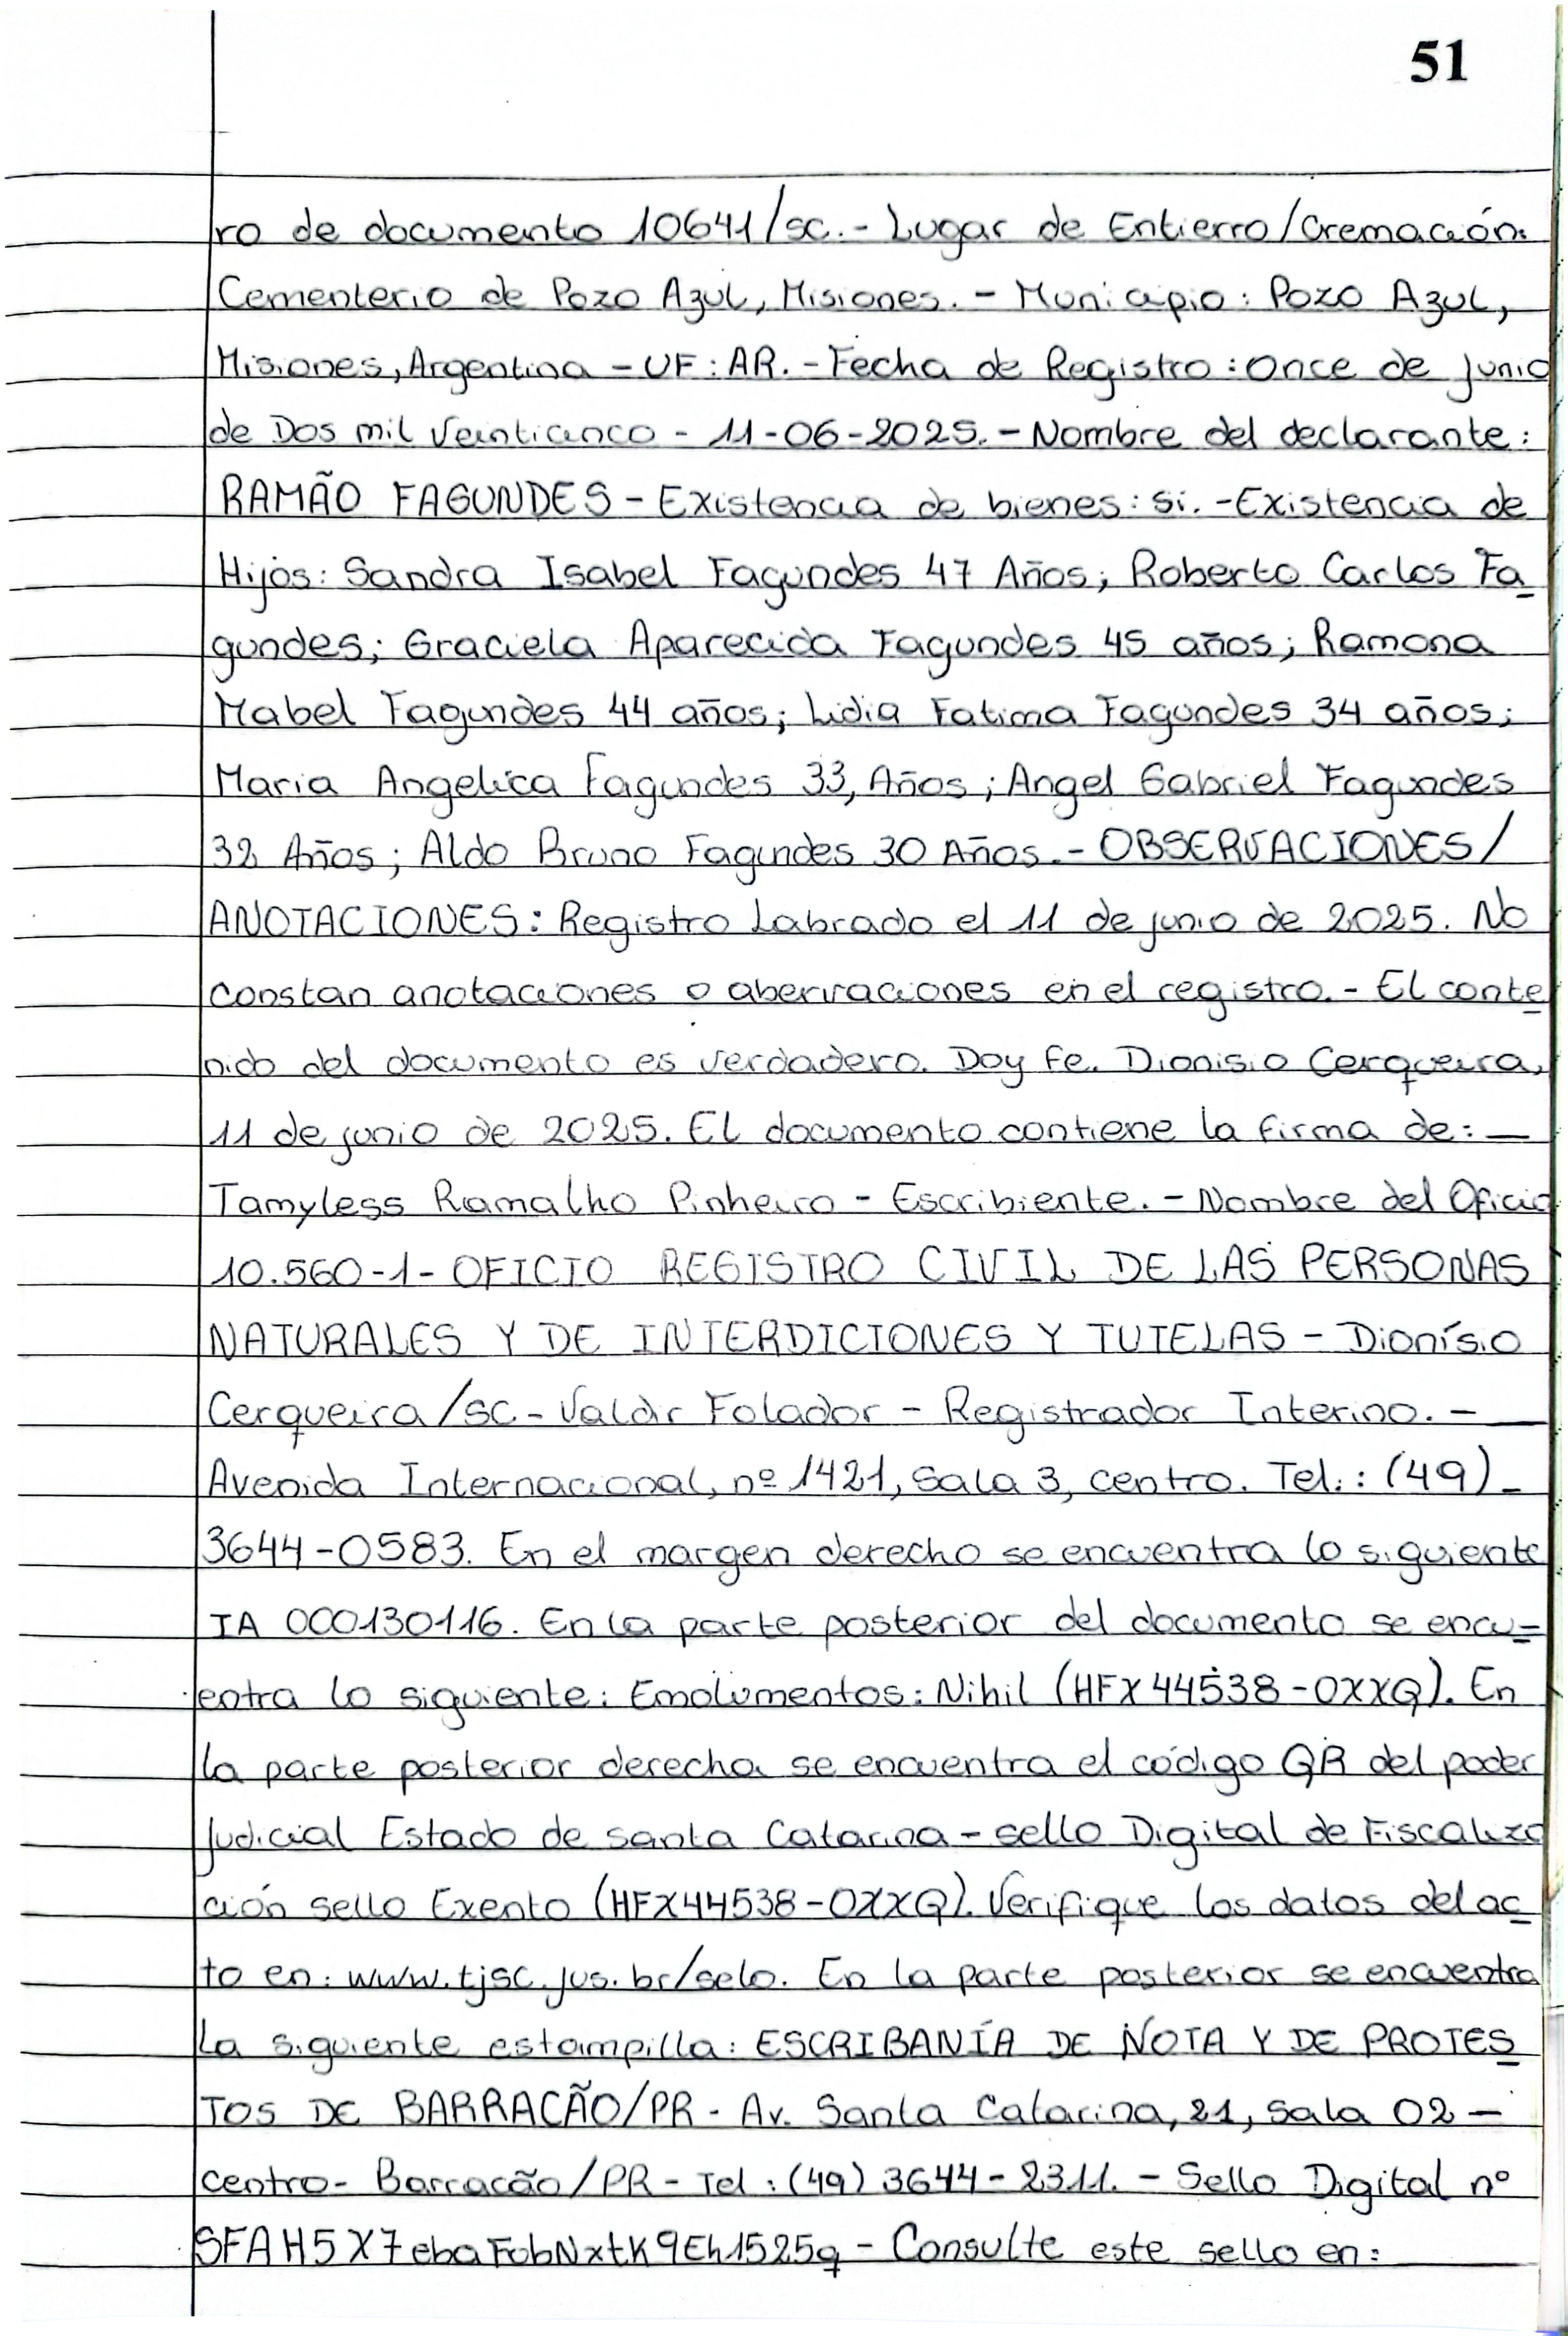 51
ro de documento 10641/sc.- Lugar de Entierro/Cremación:
Cementerio de Pozo Azul, Misiones. - Municipio: Pozo Azul,
Misiones, Argentina - UF: AR. - Fecha de Registro: Once de junio
de Dos mil Veinticinco - 11-06-2025. - Nombre del declarante:
RAMÃO FAGUNDES - Existencia de bienes: si. - Existencia de
Hijos: Sandra Isabel Fagundes 47 Años; Roberto Carlos Fa
gundes; Graciela Aparecida Fagundes 45 años; Ramona
Mabel Fagundes 44 años; Lidia Fatima Fagundes 34 años;
Maria Angelica Fagundes 33, Años; Angel Gabriel Fagundes
32 Años; Aldo Bruno Fagundes 30 Años. - OBSERVACIONES/
ANOTACIONES: Registro Labrado el 11 de junio de 2025. No
constan anotaciones o aberivaciones en el registro. - El conte
nido del documento es verdadero. Doy Fe. Dionisio Cerqueira,
11 de junio de 2025. El documento contiene la firma de: —
Tamyless Ramalho Pinheiro - Escribiente. - Nombre del Oficio
10.560-1- OFICIO REGISTRO CIVIL DE LAS PERSONAS
NATURALES Y DE INTERDICIONES Y TUTELAS - Dionísio
Cerqueira/sc - Valdir Folador - Registrador Interino. - —
Avenida Internacional, nº 1421, Sala 3, centro. Tel.: (49) -
3644-0583. En el margen derecho se encuentra lo siguiente
IA 000130116. En la parte posterior del documento se encu-
entra lo siguiente: Emolumentos: Nihil (HFX44538-OXXQ). En
la parte posterior derecha se encuentra el código QR del poder
judicial Estado de santa Catarina - sello Digital de Fiscaliza
ción sello Exento (HFX44538-OXXQ). Verifique los datos del ac
to en: www.tjsc.jus.br/selo. En la parte posterior se encuentra
la siguiente estampilla: ESCRIBANÍA DE NOTA Y DE PROTES
TOS DE BARRACÃO/PR - Av. Santa Catarina, 21, sala 02 —
centro - Barracão/PR - Tel: (49) 3644-2311. - Sello Digital nº
SFAH5X7ebaFobNxtK9Eh1525q - Consulte este sello en: —